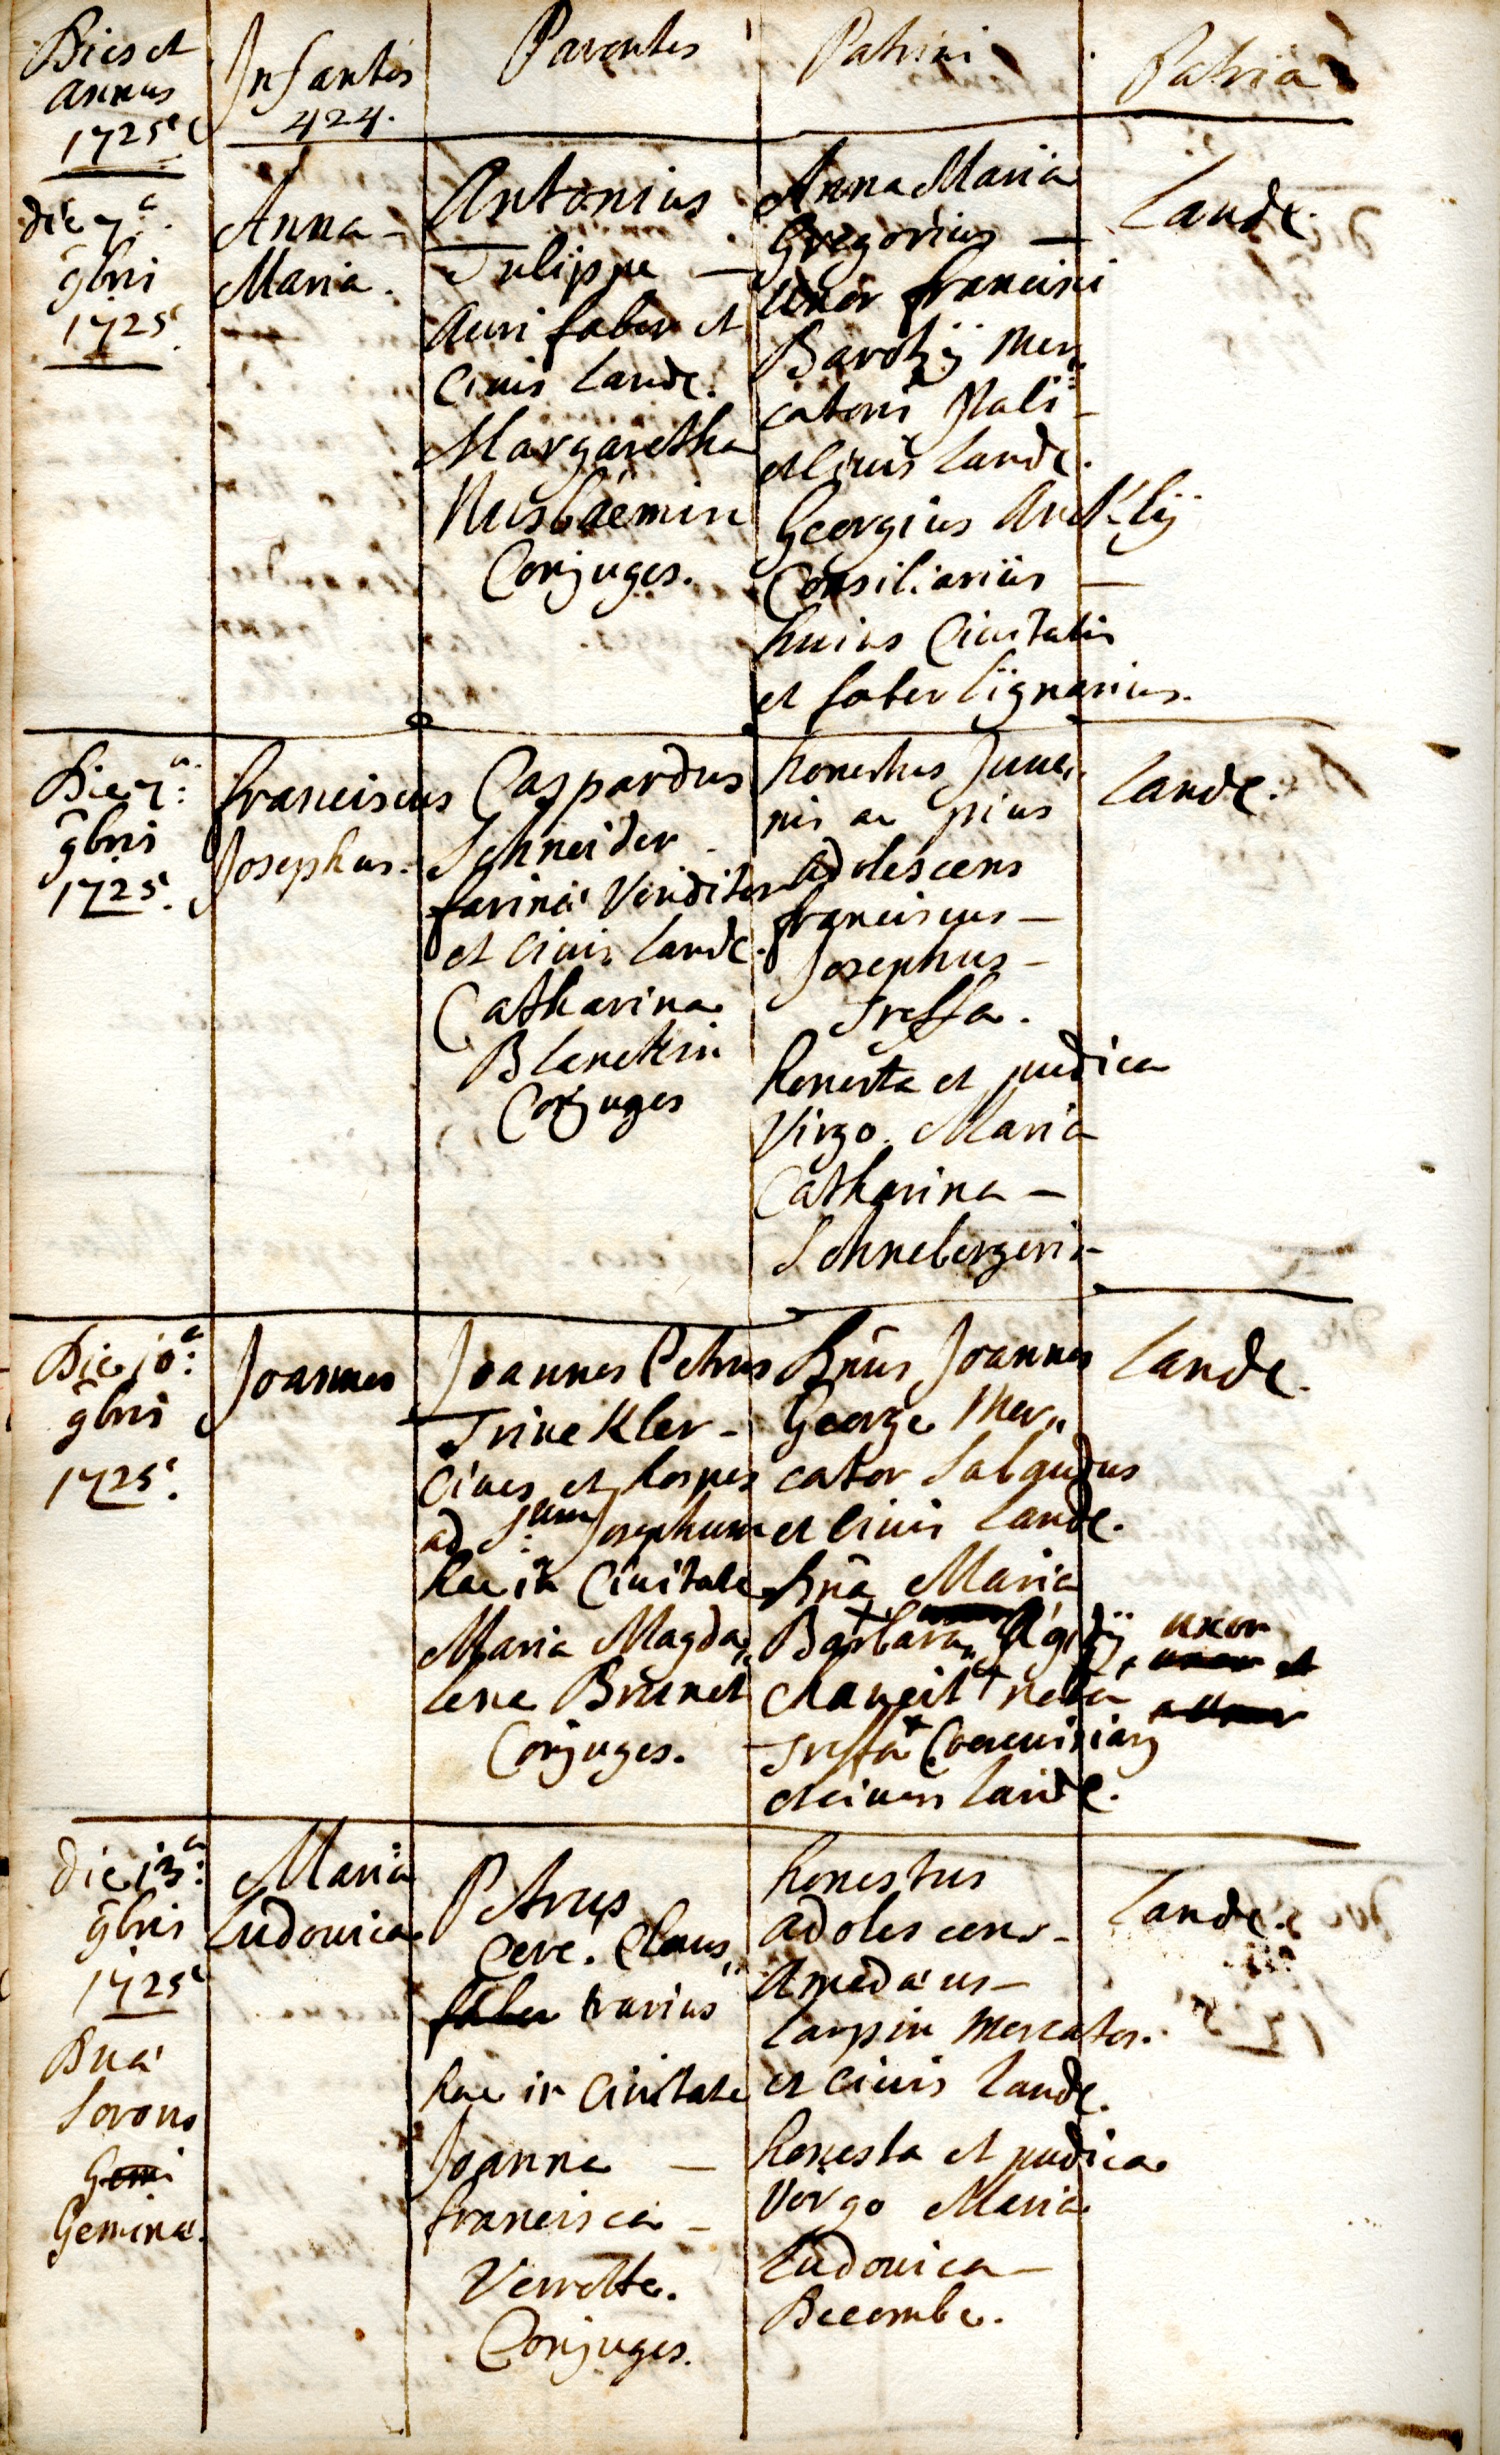 Dies et
annus
1725
Infantes
424.
Parentes
Patrini
Patria
die 7a
9bris
1725
Anna
Maria.
Antonius
Tulippe
Auri faber et
Civis Landt.
Margaretha
Nusbaemin
Conjuges.
Anna Maria
Gregorius
uxor francisci
Barotzij mer„
catoris Itali
et Civis Landt.
Georgius Arcklij
Consiliarius
huius Civitatis
et faber lignarius.
Landt.
Die 7a:
9bris
1725.
franciscus
Josephus.
Caspardus
Schneider
farina Venditor
et Civis Landt.
Catharina
Blenckin
Conjuges
honestus Juve„
nis ac pius
adolescens
franciscus
Josephus
Treffa.
honesta et pudica
Virgo Maria
Catharina
Schnebergerin
Landt.
Die 10a:
9bris
1725.
Joannes
Joannes Petrus
Trinckler
Cives et hospes
ad Stum Josephum
hac in Civitate
Maria Magda„
lena Brunet
Conjuges.
Dnūs Joannes
George Mer„
cator Sabaudus
et Civis Landt.
Dnā Maria
Barbara Agidij uxor
Chancit nata
Treffa
et Civis Landt.
Landt.
die 13a:
9bris
1725
Duā
Sorores
Gemi
Gemina.
Maria
Ludovica
Petrus
Cere. Claus„
faber trarius
hac in Civitate
Joanna
francisca
Verrette.
Conjuges.
honestus
adolescens
Amedaus
Carpin mercator
et Civis Landt.
honesta et pudica
Virgo Maria
Ludovica
Becombe.
Landt.